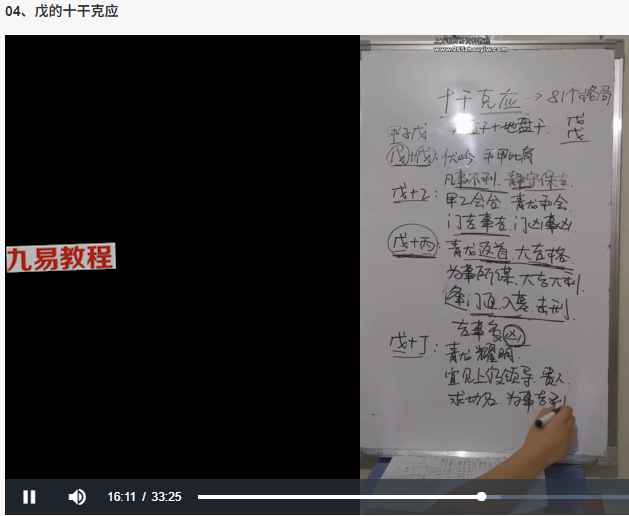 04、戊的十干克应
www.265zhouyiw.com
十干克应 → 81个格局
天盘干+地盘干
戊
戊
甲子戊
戊+戊：伏吟 平甲比肩
凡事不利．静守保吉．
戊+乙：甲乙会合 青龙和会
门吉事吉 门凶事凶
戊+丙：青龙返首 大吉格
为事所谋．大吉大利．
逢门迫．入墓．击刑
吉事多凶
戊+丁：青龙耀明．
宜见上级领导．贵人．
求功名．为事吉利
九易教程
16:11 / 33:25